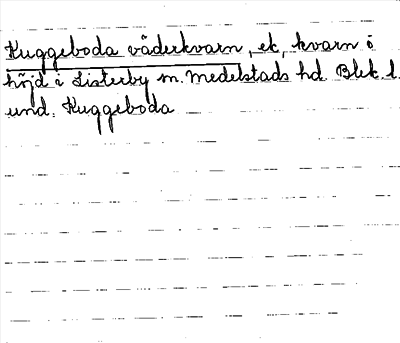 Kuggeboda väderkvarn, ek, kvarn å
höjd i Listerby sn. Medelstads hd Blek. l.
und. Kuggeboda